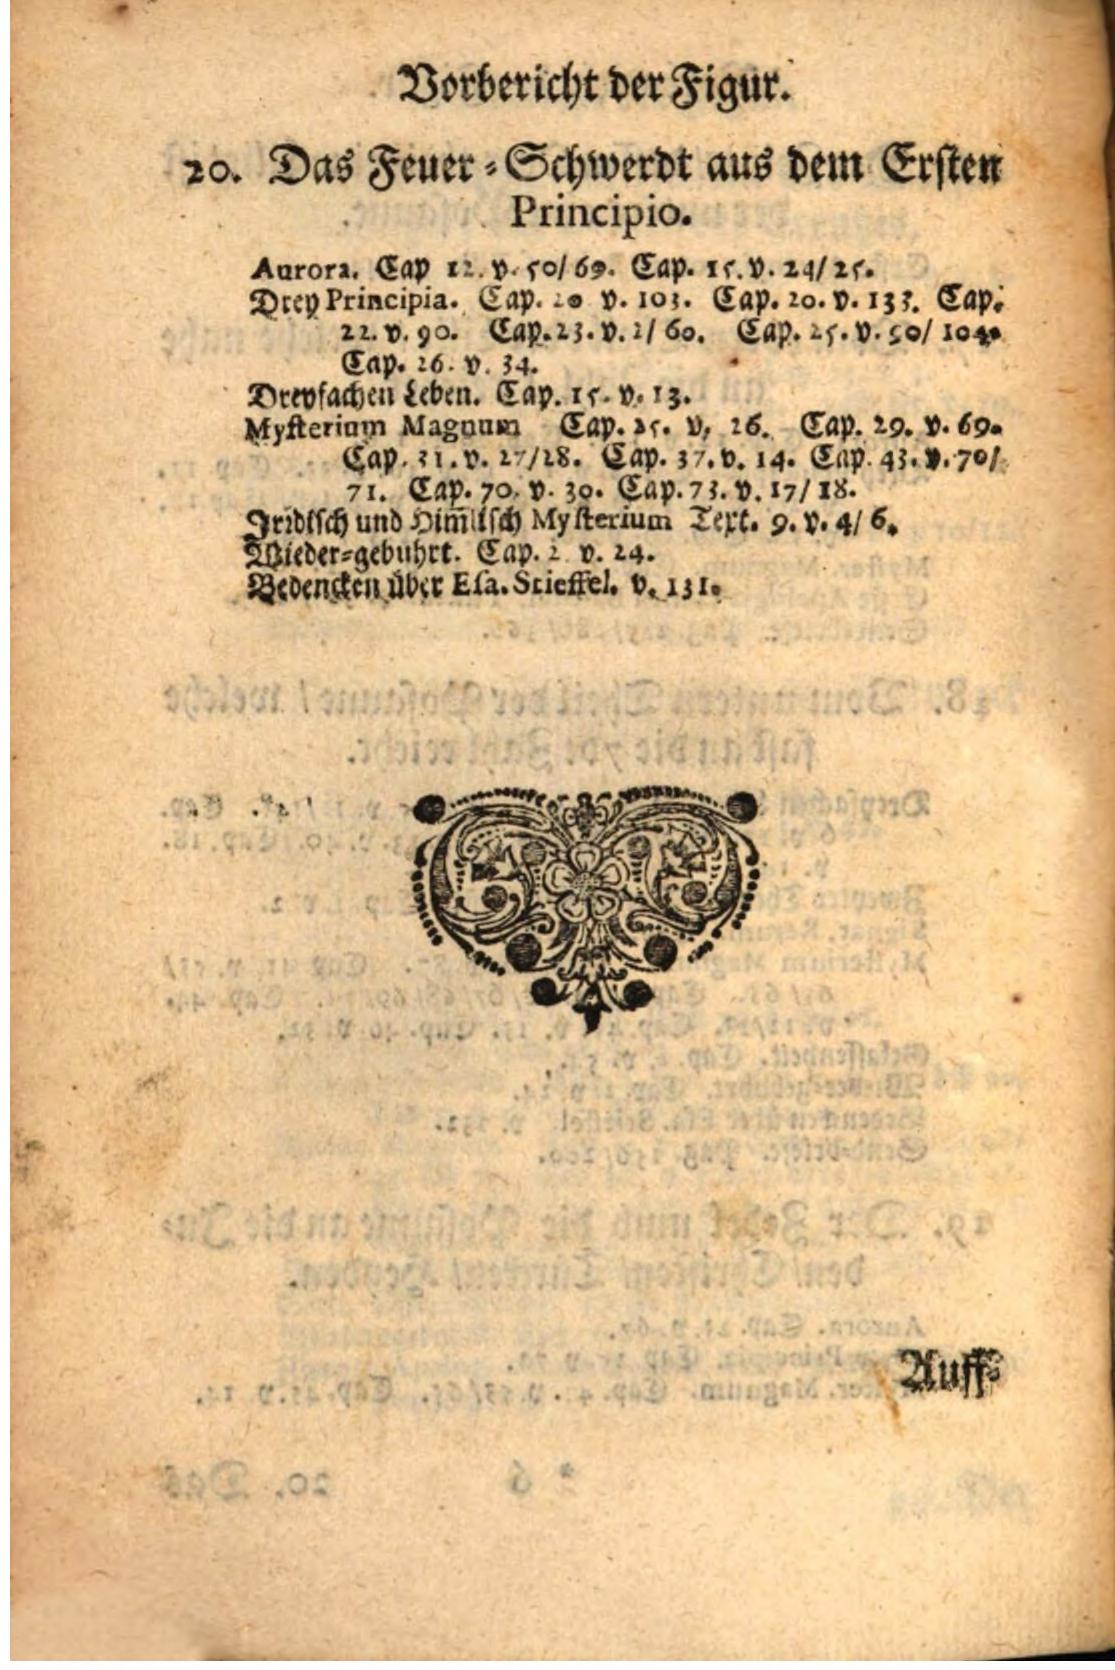 Vorbericht der Figur.
20. Das Feuer-Schwerdt aus dem Ersten
Principio.
Aurora. Cap 12. v. 50/69. Cap. 15. v. 24/25.
Drey Principia. Cap. 20 v. 103. Cap. 20. v. 133. Cap.
22. v. 90. Cap. 23. v. 2/60. Cap. 25. v. 50/104.
Cap. 26. v. 34.
Dreyfachen Leben. Cap. 15. v. 13.
Mysterium Magnum Cap. 25. v. 26. Cap. 29. v. 69.
Cap. 31. v. 27/28. Cap. 37. v. 14. Cap. 43. v. 70/
71. Cap. 70. v. 30. Cap. 73. v. 17/18.
Irrdisch und Him̄lisch Mysterium Text. 9. v. 4/6.
Wieder-gebuhrt. Cap. 2 v. 24.
Bedencken über Esa. Stieffel. v. 131.
Auff-